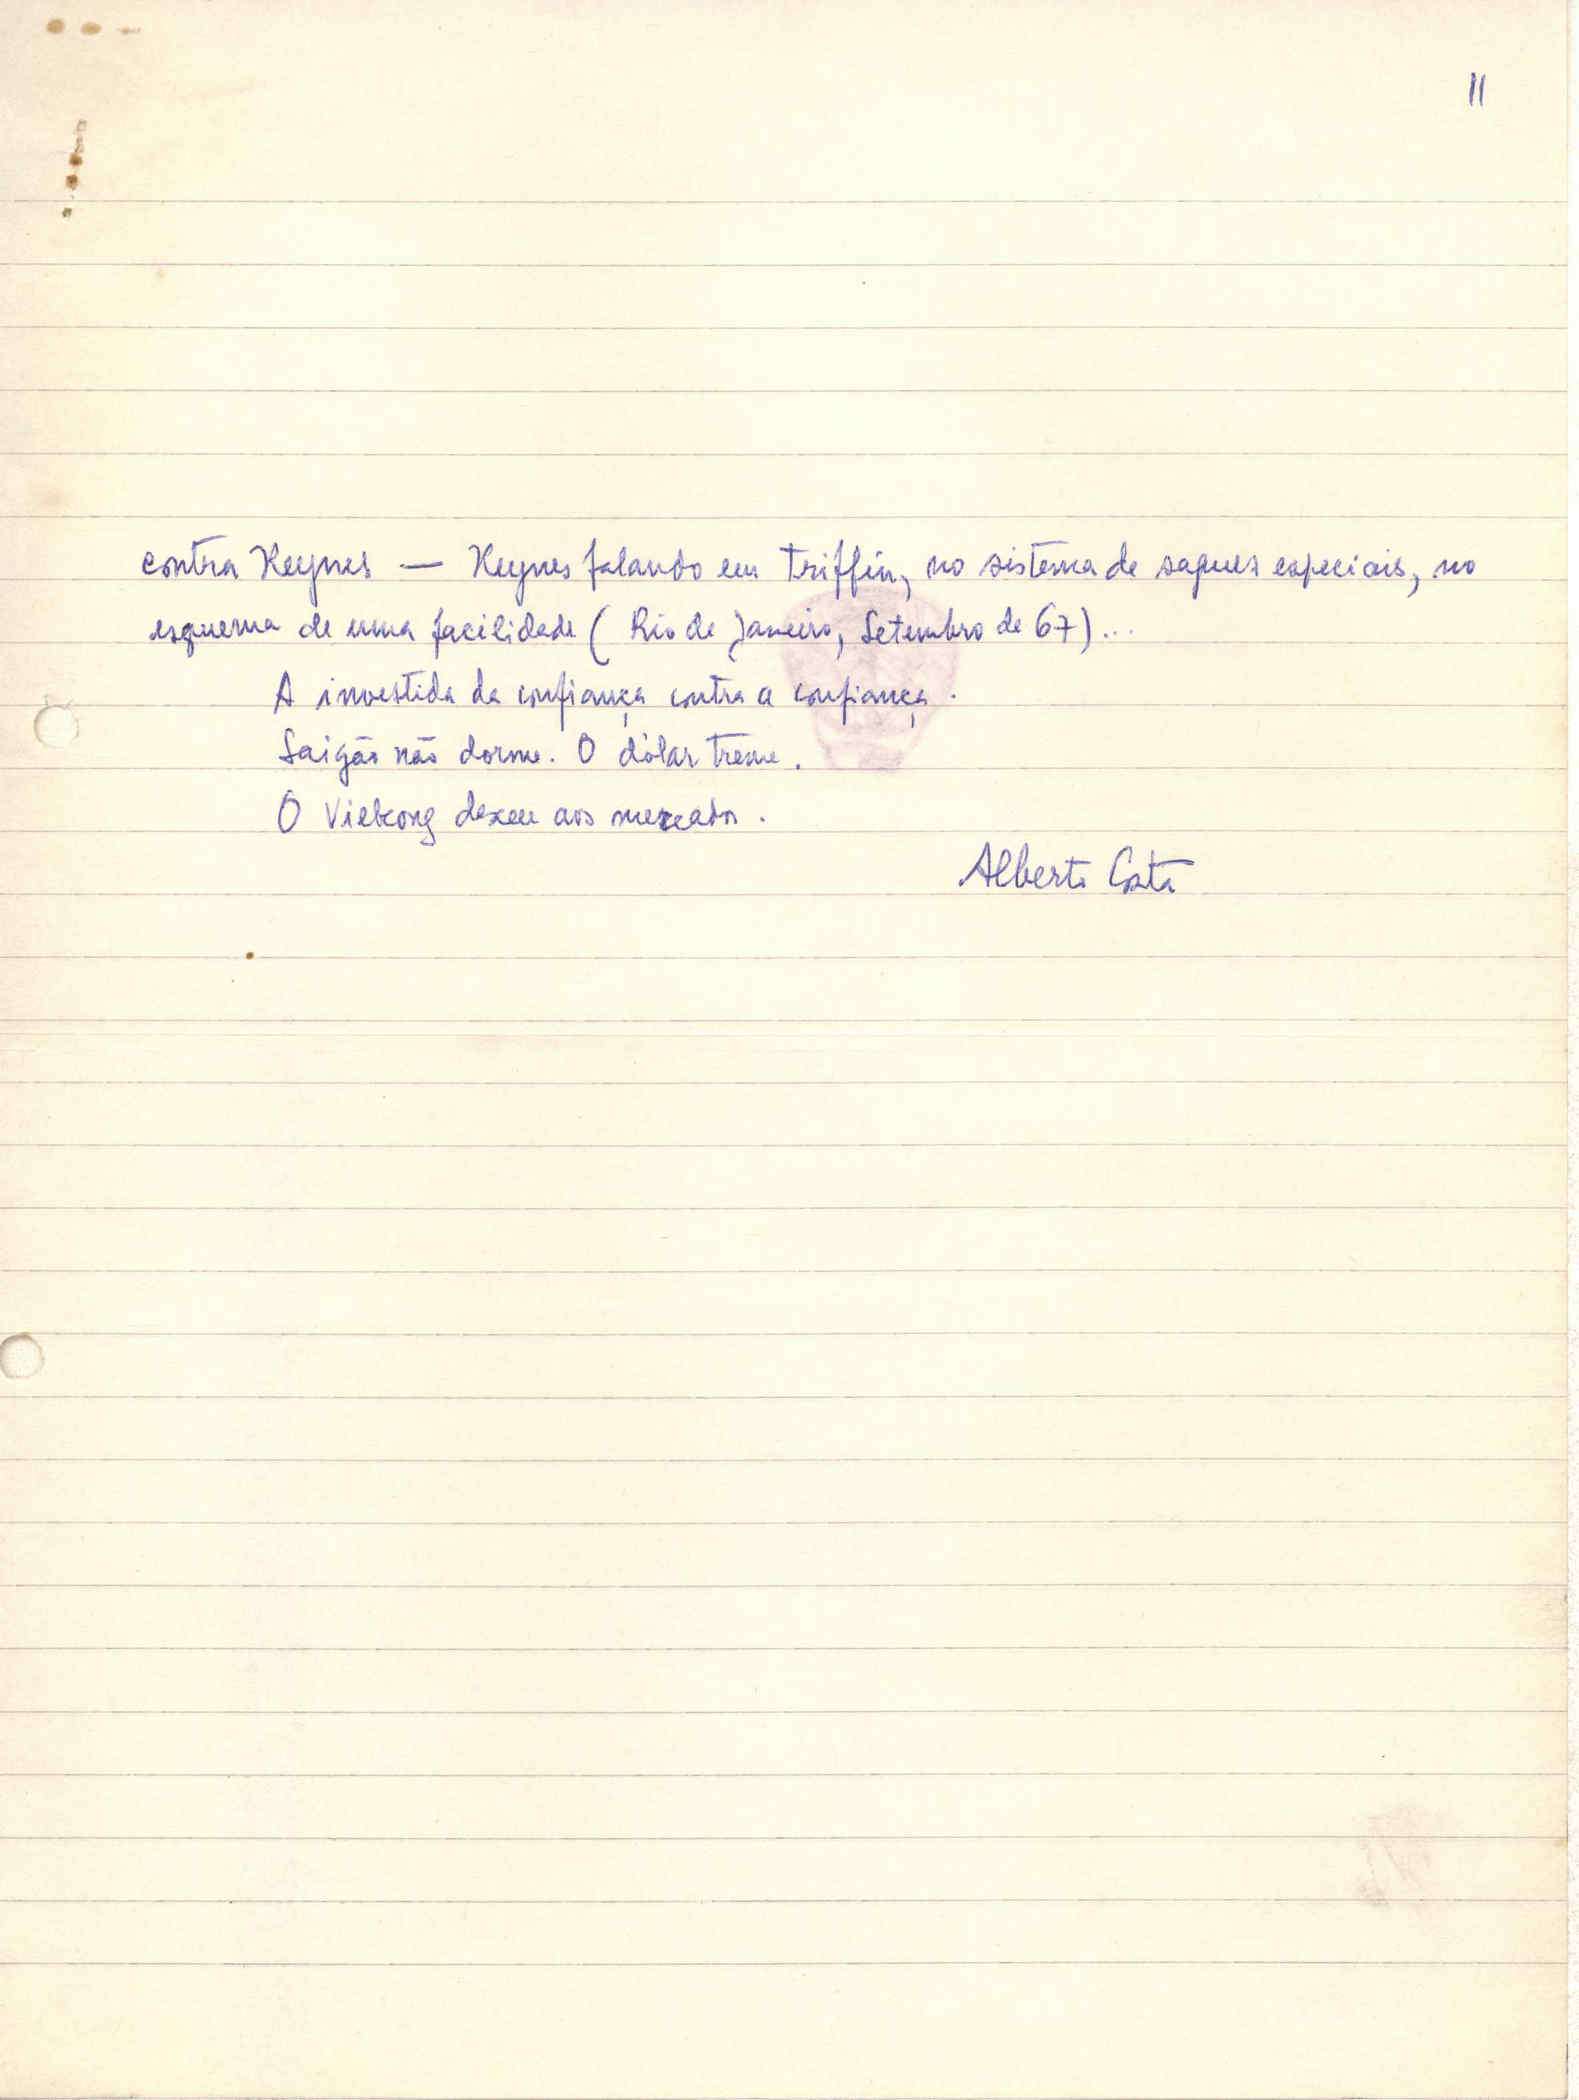 11
contra Keynes — Keynes falando em Triffin, no sistema de saques especiais, no
esquema de uma facilidade ( Rio de Janeiro, Setembro de 67)...
A investida da confiança contra a confiança.
Saigão não dorme. O dólar treme.
O Vietcong desceu aos mercados.
Alberto Costa